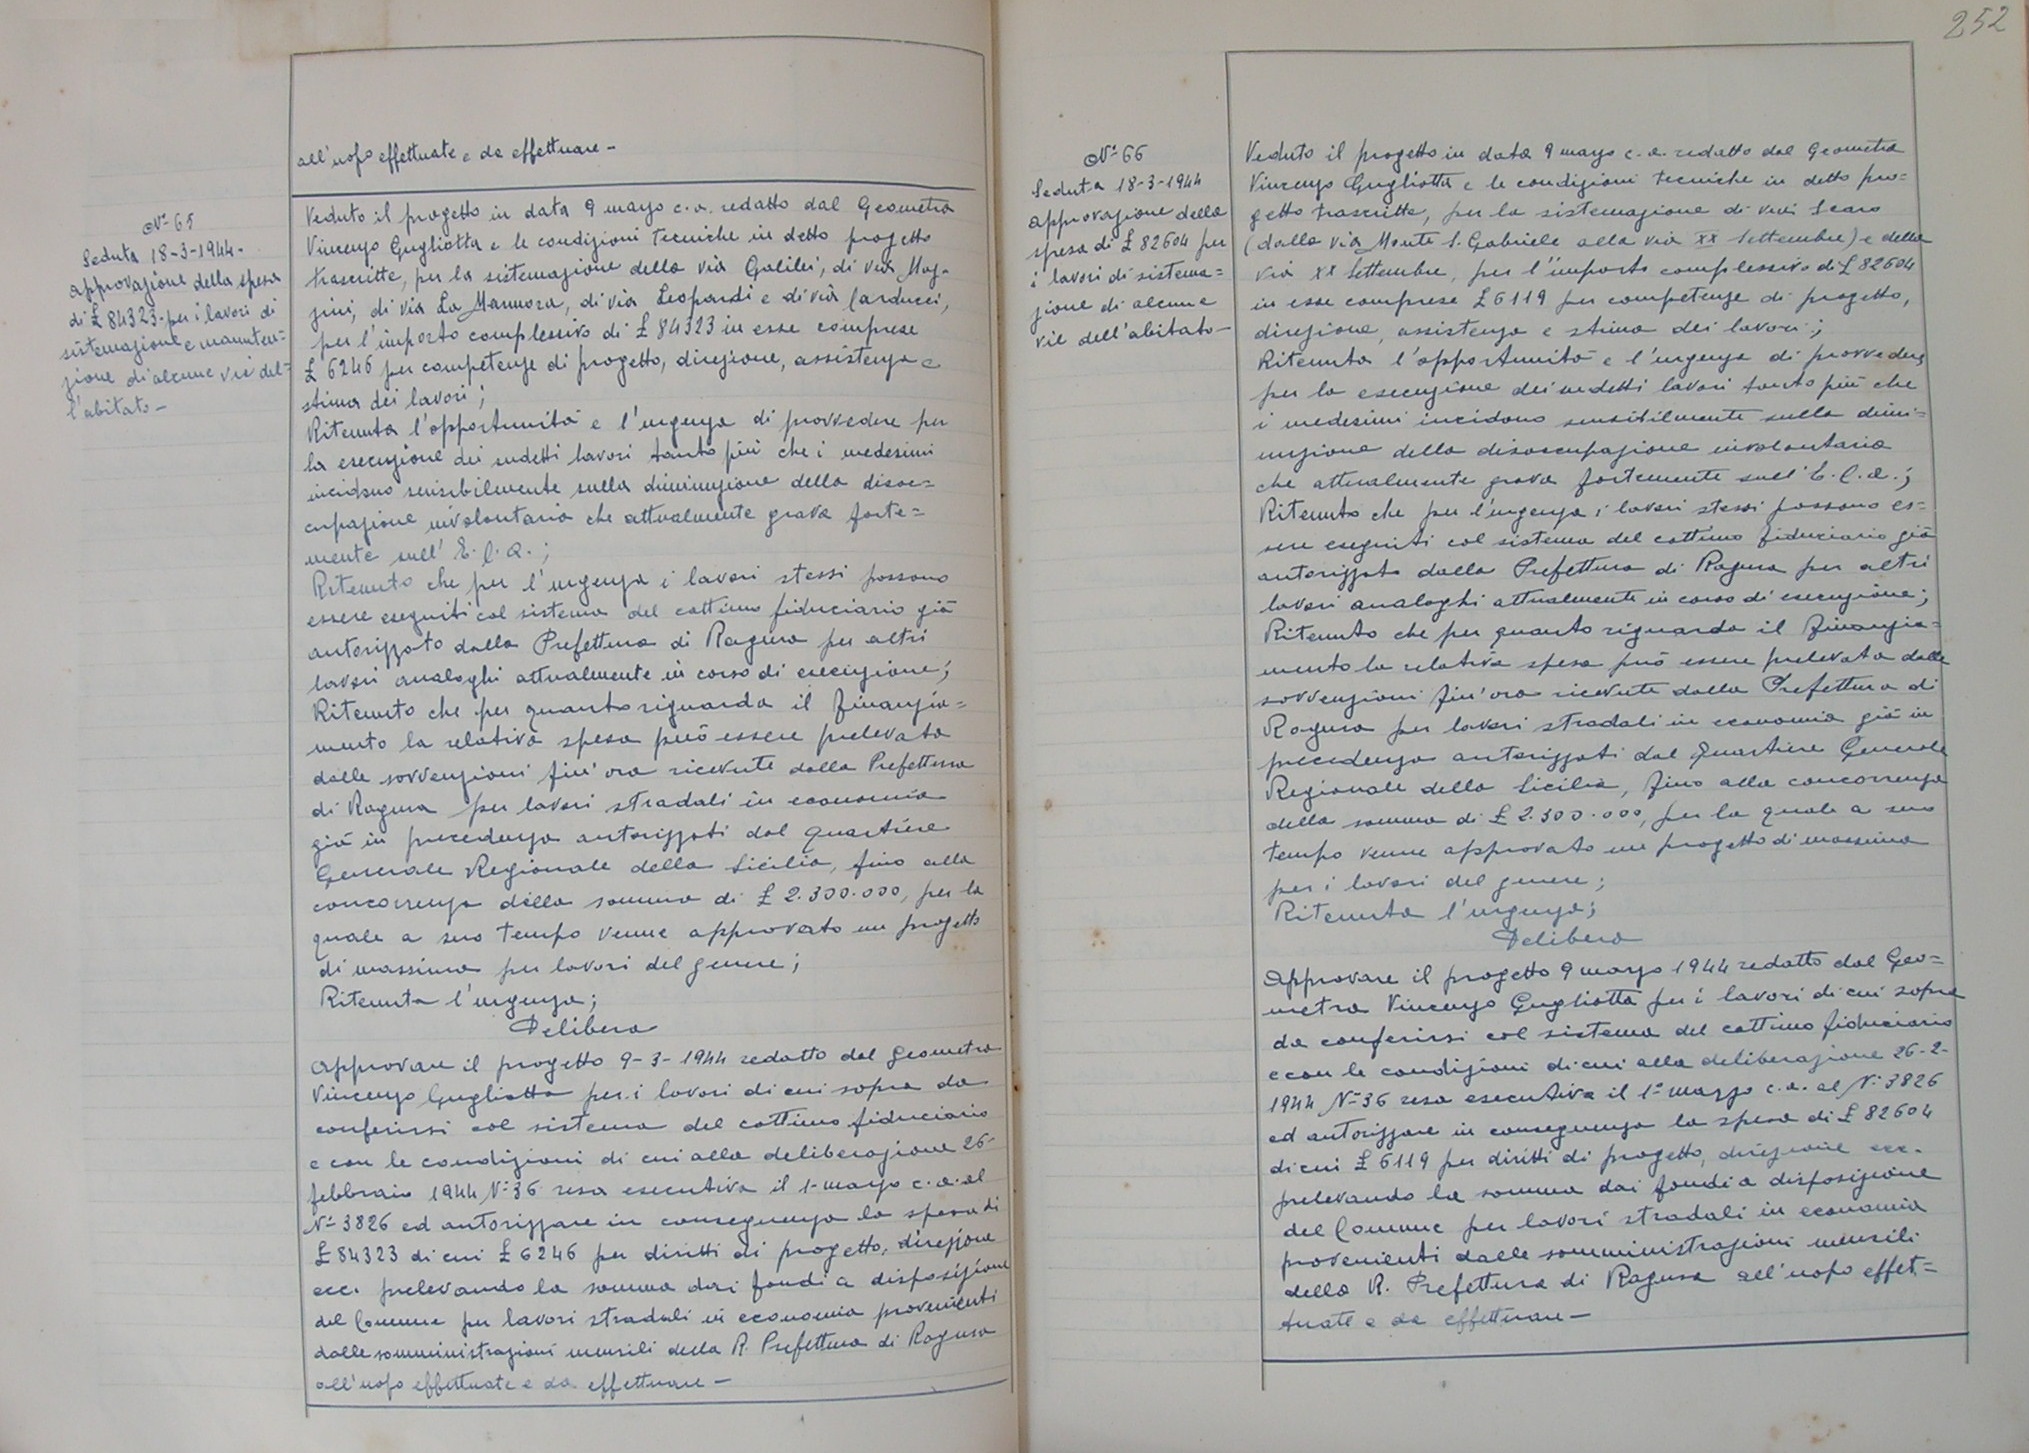 all'uopo effettuate e da effettuare –
N° 65
Seduta 18-3-1944-
Approvazione della spesa
di £ 84323 per i lavori di
sistemazione e manuten=
zione di alcune vie del=
l'abitato –
Veduto il progetto in data 9 marzo c.a. redatto dal Geometra
Vincenzo Gugliotta e le condizioni tecniche in detto progetto
trascritte, per la sistemazione della via Galilei, di via Maz-
zini, di via La Marmora, di via Leopardi e di via Carducci,
per l'importo complessivo di £ 84323 in esse comprese
£ 6246 per competenze di progetto, direzione, assistenza e
stima dei lavori;
Ritenuta l'opportunità e l'urgenza di provvedere per
la esecuzione dei sudetti lavori tanto più che i medesimi
incidono sensibilmente sulla diminuzione della disoc=
cupazione involontaria che attualmente grava forte=
mente sull'E.C.A.;
Ritenuto che per l'urgenza i lavori stessi possono
essere eseguiti col sistema del cottimo fiduciario già
autorizzato dalla Prefettura di Ragusa per altri
lavori analoghi attualmente in corso di esecuzione;
Ritenuto che per quanto riguarda il finanzia=
mento la relativa spesa può essere prelevata
dalle sovvenzioni fin'ora ricevute dalla Prefettura
di Ragusa per lavori stradali in economia
già in precedenza autorizzati dal Quartiere
Generale Regionale della Sicilia, fino alla
concorrenza della somma di £ 2.300.000, per la
quale a suo tempo venne approvato un progetto
di massima per lavori del genere;
Ritenuta l'urgenza;
Delibera
Approvare il progetto 9-3-1944 redatto dal Geometra
Vincenzo Gugliotta per i lavori di cui sopra da
conferirsi col sistema del cottimo fiduciario
e con le condizioni di cui alla deliberazione 26-
febbraio 1944 N° 36 resa esecutiva il 1- marzo c.a. al
N° 3826 ed autorizzare in conseguenza la spesa di
£ 84323 di cui £ 6246 per diritti di progetto, direzione
ecc. prelevando la somma dai fondi a disposizione
del Comune per lavori stradali in economia provenienti
dalle somministrazioni mensili della R. Prefettura di Ragusa
all'uopo effettuate e da effettuare –
252
N° 66
Seduta 18-3-1944
Approvazione della
spesa di £ 82604 per
i lavori di sistema=
zione di alcune
vie dell'abitato –
Veduto il progetto in data 9 marzo c.a. redatto dal Geometra
Vincenzo Gugliotta e le condizioni tecniche in detto pro=
getto trascritte, per la sistemazione di via
(dalla via Monte S. Gabriele alla via XX Settembre) e della
via XX Settembre, per l'importo complessivo di £ 82604
in esse comprese £ 6119 per competenze di progetto,
direzione, assistenza e stima dei lavori;
Ritenuta l'opportunità e l'urgenza di provvedere
per la esecuzione dei sudetti lavori tanto più che
i medesimi incidono sensibilmente sulla dimi-
nuzione della disoccupazione involontaria
che attualmente grava fortemente sull'E.C.A.;
Ritenuto che per l'urgenza i lavori stessi possono es=
sere eseguiti col sistema del cottimo fiduciario già
autorizzato dalla Prefettura di Ragusa per altri
lavori analoghi attualmente in corso di esecuzione;
Ritenuto che per quanto riguarda il finanzia=
mento la relativa spesa può essere prelevata dalle
sovvenzioni fin'ora ricevute dalla Prefettura di
Ragusa per lavori stradali in economia già in
precedenza autorizzati dal Quartiere Generale
Regionale della Sicilia, fino alla concorrenza
della somma di £ 2.300.000, per la quale a suo
tempo venne approvato un progetto di massima
per i lavori del genere;
Ritenuta l'urgenza;
Delibera
Approvare il progetto 9 marzo 1944 redatto dal Geo=
metra Vincenzo Gugliotta per i lavori di cui sopra
da conferirsi col sistema del cottimo fiduciario
e con le condizioni di cui alla deliberazione 26-2-
1944 N° 36 resa esecutiva il 1° marzo c.a. al N° 3826
ed autorizzare in conseguenza la spesa di £ 82604
di cui £ 6119 per diritti di progetto, direzione ecc.
prelevando la somma dai fondi a disposizione
del Comune per lavori stradali in economia
provenienti dalle somministrazioni mensili
della R. Prefettura di Ragusa all'uopo effet=
tuate e da effettuare –